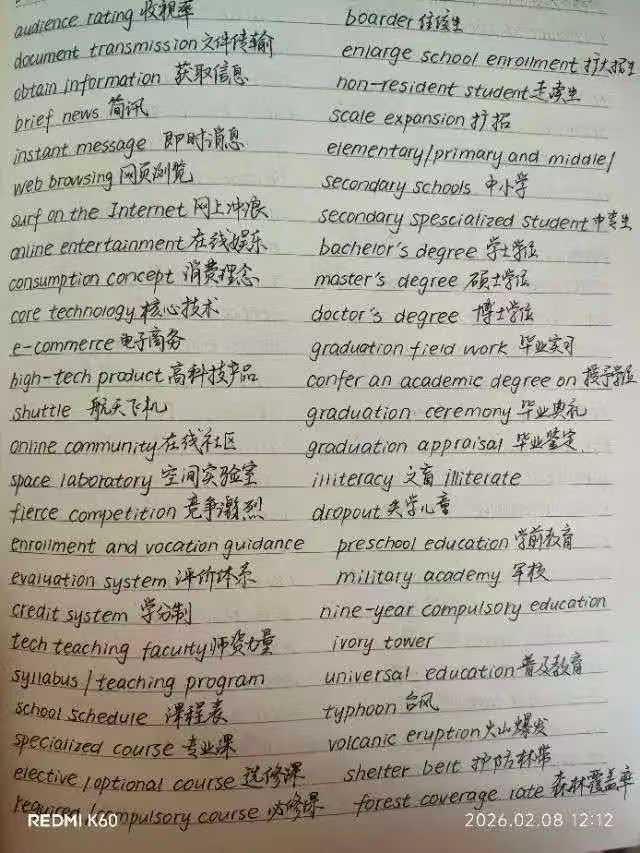 audience rating 收视率
document transmission 文件传输
obtain information 获取信息
brief news 简讯
instant message 即时消息
web browsing 网页浏览
surf on the Internet 网上冲浪
online entertainment 在线娱乐
consumption concept 消费理念
core technology 核心技术
e-commerce 电子商务
high-tech product 高科技产品
shuttle 航天飞机
online community 在线社区
space laboratory 空间实验室
fierce competition 竞争激烈
enrollment and vocation guidance
evaluation system 评价体系
credit system 学分制
tech teaching faculty 师资力量
syllabus/teaching program
school schedule 课程表
specialized course 专业课
elective/optional course 选修课
required/compulsory course 必修课
boarder 住读生
enlarge school enrollment 扩大招生
non-resident student 走读生
scale expansion 扩招
elementary/primary and middle/
secondary schools 中小学
secondary spescialized student 中专生
bachelor's degree 学士学位
master's degree 硕士学位
doctor's degree 博士学位
graduation field work 毕业实习
confer an academic degree on 授予学位
graduation ceremony 毕业典礼
graduation appraisal 毕业鉴定
illiteracy 文盲 illiterate
dropout 失学儿童
preschool education 学前教育
military academy 军校
nine-year compulsory education
ivory tower
universal education 普及教育
typhoon 台风
volcanic eruption 火山爆发
shelter belt 护防林带
forest coverage rate 森林覆盖率
REDMI K60
2026.02.08 12:12